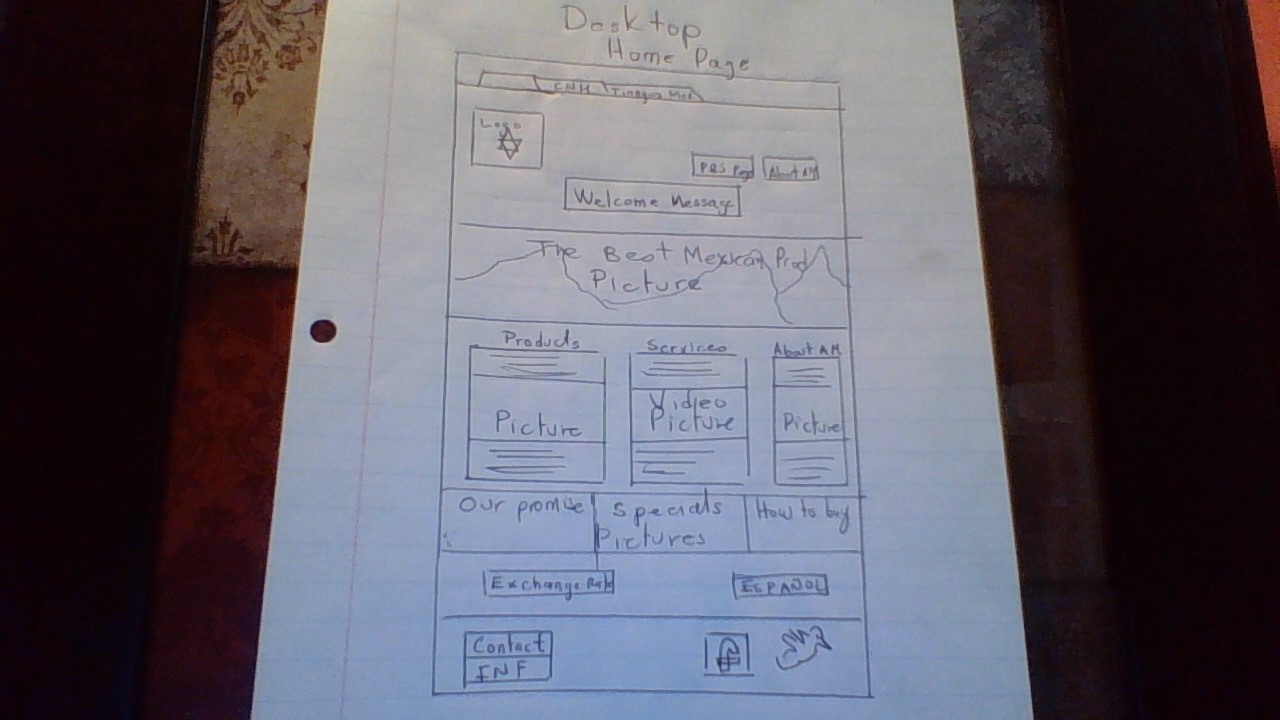 Desktop
Home Page
CNM
Logo
PBS Page
About AM
Welcome Message
The Best Mexican Prod
Picture
Products
Services
About AM
Picture
Video
Picture
Picture
Our promise
Specials
Pictures
How to buy
Exchange Rate
ESPAÑOL
Contact
INF
f